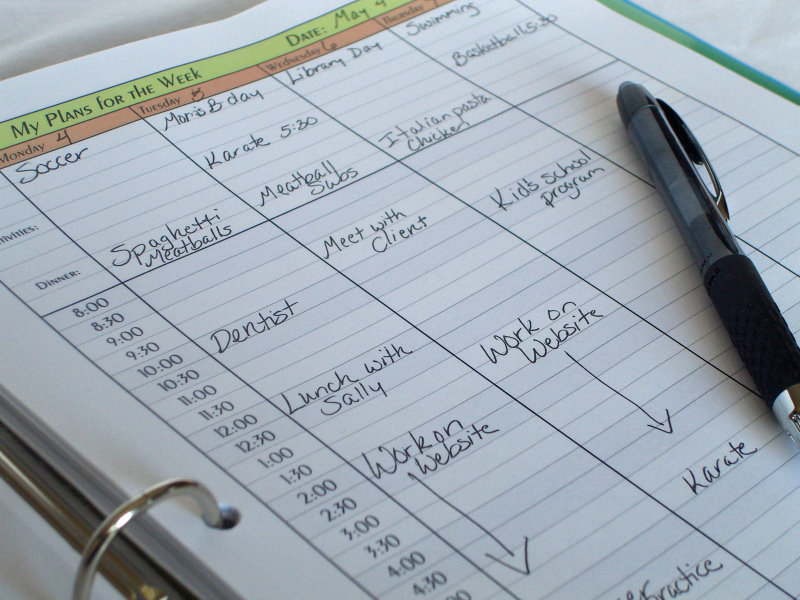 My Plans for the Week
Date: May 4
Monday 4
Tuesday 5
Wednesday 6
Thursday
Soccer
Mom's B-day
Library Day
Swimming
Karate 5:30
Basketball 5:30
Dinner:
Spaghetti
Meatballs
Meatball
Subs
Italian pasta
Chicken
8:00
8:30
9:00
9:30
10:00
10:30
11:00
11:30
12:00
12:30
1:00
1:30
2:00
2:30
3:00
3:30
4:00
4:30
Dentist
Lunch with
Sally
Work on
Website
Meet with
Client
Kid's school
program
Work on
Website
Karate
Practice